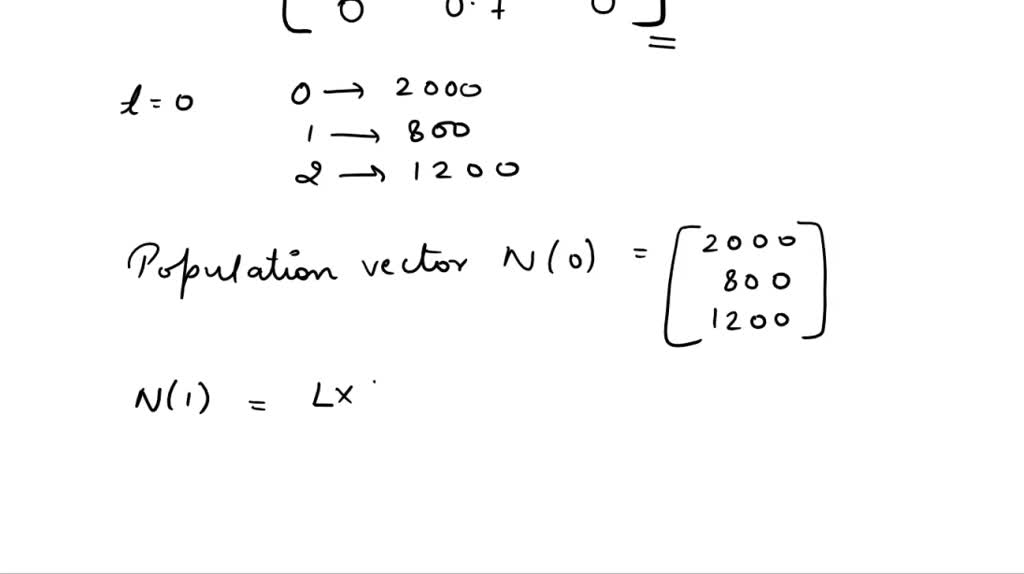 [ 0 0.7 0 ]
=
t=0 0 → 2000
1 → 800
2 → 1200
Population vector N(0) = [ 2000
800
1200 ]
N(1) = L×